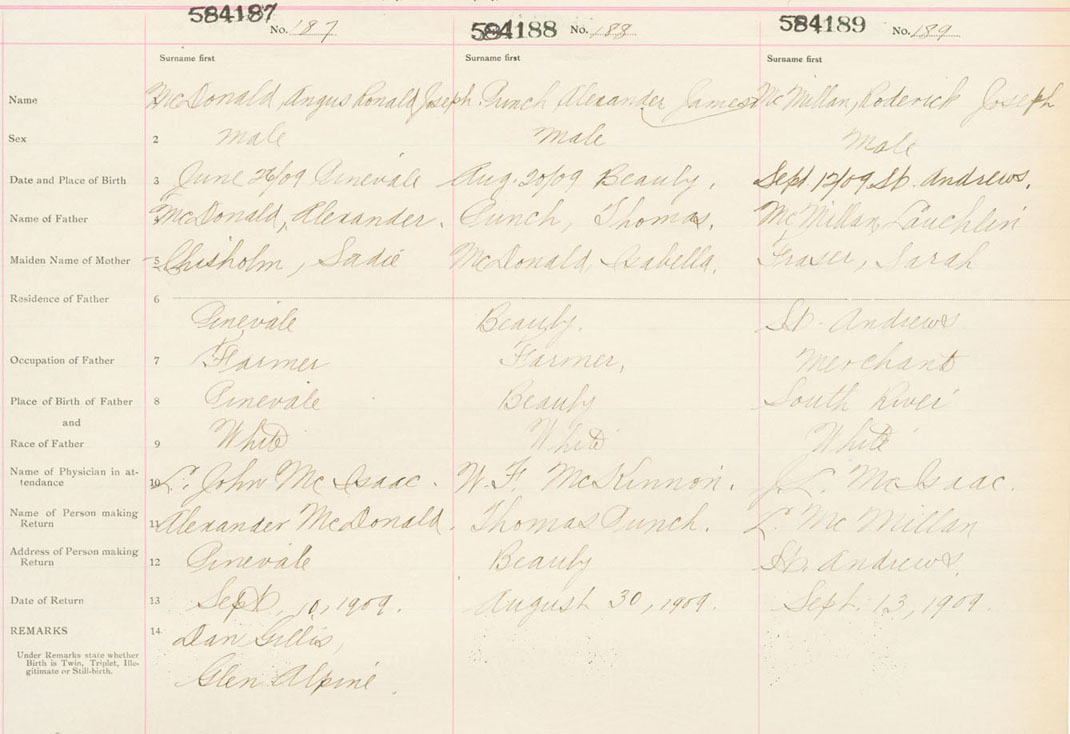 584187 No. 187 584188 No. 188 584189 No. 189
Surname first Surname first Surname first
Name McDonald, Angus Ronald Joseph. Punch Alexander James McMillan, Roderick Joseph
Sex 2 Male Male Male
Date and Place of Birth 3 June 26/09 Pinevale Aug. 20/09 Beauly. Sept. 12/09 St. Andrews.
Name of Father McDonald, Alexander. Punch, Thomas. McMillan, Lauchlin
Maiden Name of Mother 5 Chisholm, Sadie McDonald, Isabella. Fraser, Sarah
Residence of Father 6
Pinevale Beauly. St. Andrews
Occupation of Father 7 Farmer Farmer, Merchant
Place of Birth of Father 8 Pinevale Beauly South River
and
Race of Father 9 White White White
Name of Physician in at-
tendance 10 John McIsaac. W. F. McKinnon. J. L. McIsaac.
Name of Person making
Return 11 Alexander McDonald. Thomas Punch. L. McMillan
Address of Person making
Return 12 Pinevale Beauly St. Andrews.
Date of Return 13 Sept, 10, 1909. August 30, 1909. Sept. 13, 1909.
REMARKS 14 Dan Gillis,
Under Remarks state whether
Birth is Twin, Triplet, Ille-
gitimate or Still-birth.
Glen Alpine.